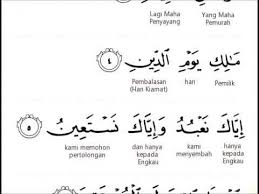 Lagi Maha Yang Maha
Penyayang Pemurah
مَلِكِ يَوْمِ الدِّينِ ٤
Pembalasan hari Pemilik
(Hari Kiamat)
إِيَّاكَ نَعْبُدُ وَإِيَّاكَ نَسْتَعِينُ ٥
kami memohon dan hanya kami hanya
pertolongan kepada menyembah kepada
Engkau Engkau